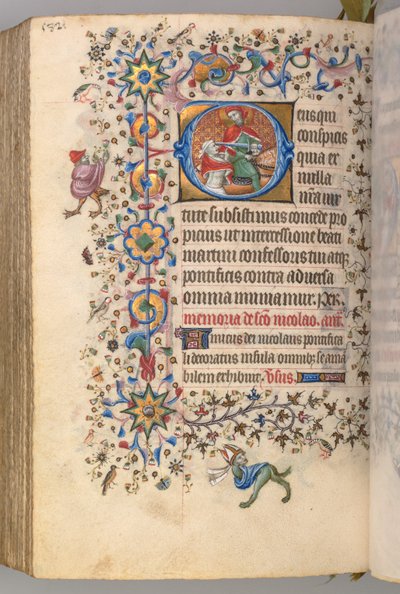 eus qui
conspicis
quia ex
nulla
nr̃a uir
tute subsistimus concede pro
picius ut intercessione beati
martini confessoris tui atq̃
pontificis contra aduersa
omnia muniamur. per.
memoria de sc̃o nicolao. añ.
Amicus dei nicolaus pontifica
li decoratus insula omnib; se ama
bilem exhibuit. v̓sus.